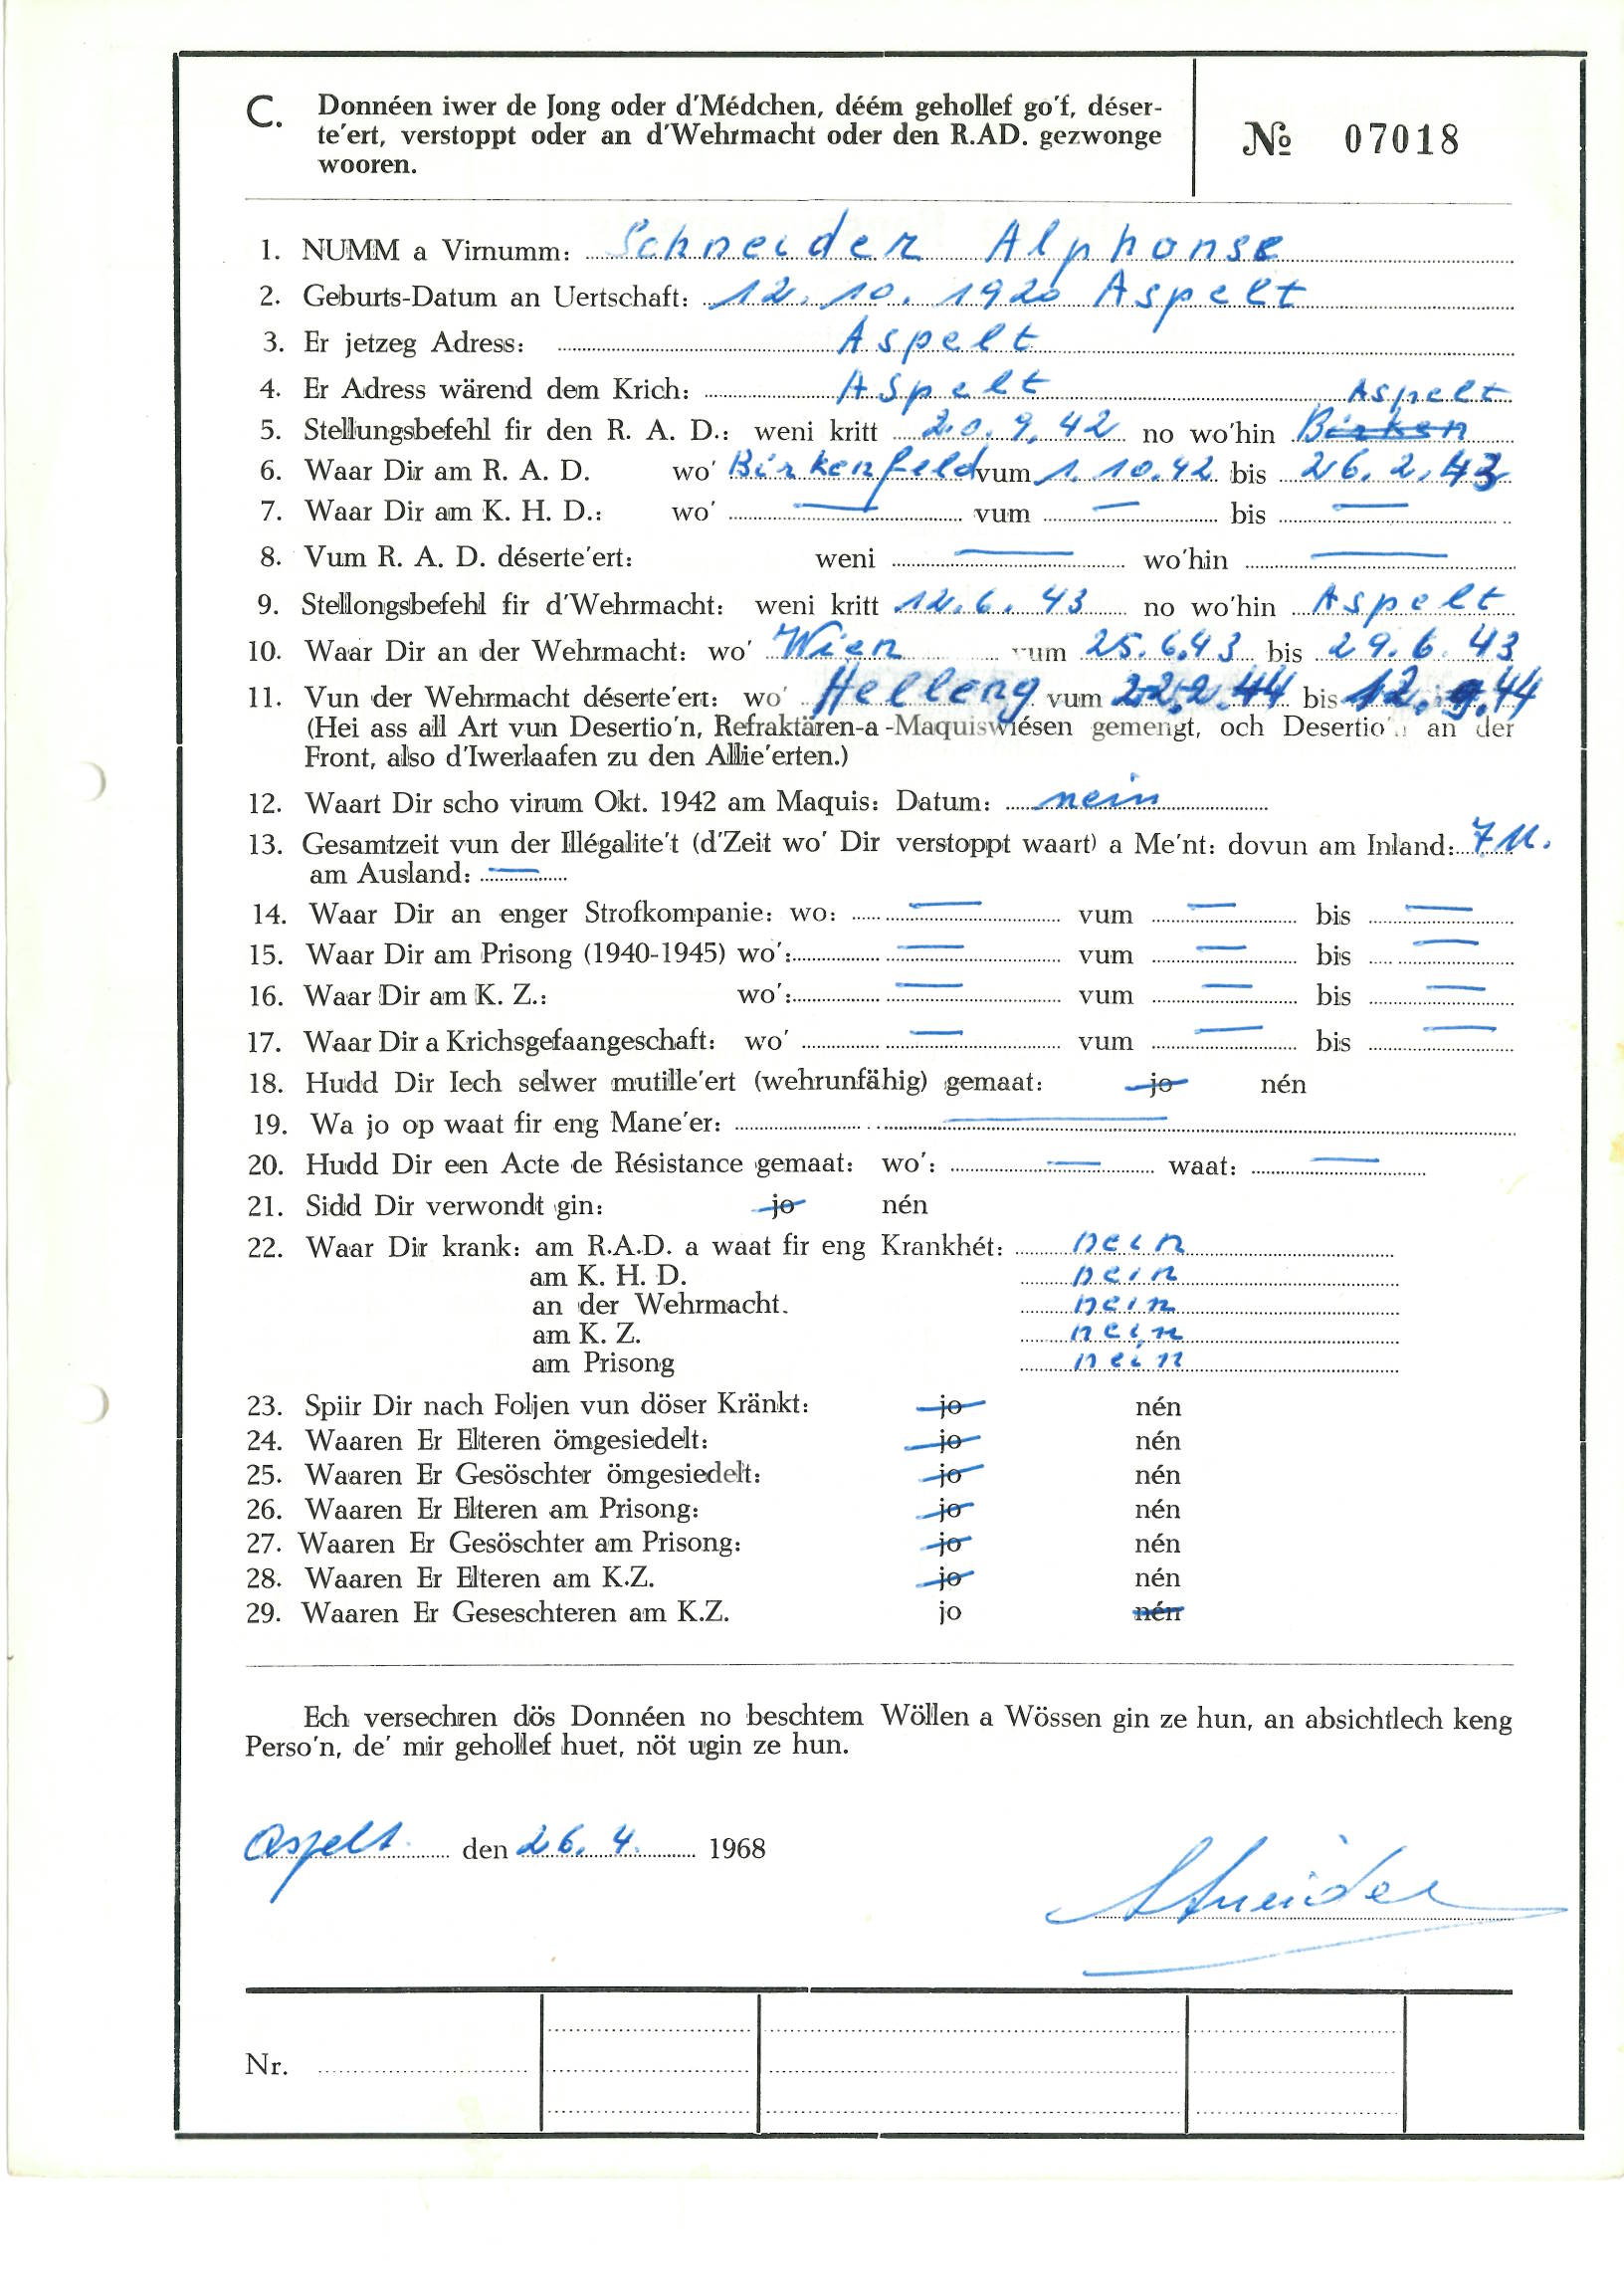 C. Donnéen iwer de Jong oder d'Médchen, déém gehollef go'f, déser-
te'ert, verstoppt oder an d'Wehrmacht oder den R.AD. gezwonge
wooren.
№ 07018
1. NUMM a Virnumm: Schneider Alphonse
2. Geburts-Datum an Uertschaft: 12. 10. 1920 Aspelt
3. Er jetzeg Adress: Aspelt
4. Er Adress wärend dem Krich: Aspelt
Aspelt
5. Stellungsbefehl fir den R. A. D.: weni kritt 20. 9. 42 no wo'hin Birken
6. Waar Dir am R. A. D. wo' Birkenfeld vum 1. 10. 42 bis 26. 2. 43
7. Waar Dir am K. H. D.: wo' — vum — bis —
8. Vum R. A. D. déserte'ert: weni — wo'hin —
9. Stellongsbefehl fir d'Wehrmacht: weni kritt 12. 6. 43 no wo'hin Aspelt
10. Waar Dir an der Wehrmacht: wo' Wien vum 25. 6. 43 bis 29. 6. 43
11. Vun der Wehrmacht déserte'ert: wo' Helleng vum 22. 2. 44 bis 12. 9. 44
(Hei ass all Art vun Desertio'n, Refraktären-a -Maquiswiésen gemengt, och Desertio'n an der
Front, also d'Iwerlaafen zu den Allie'erten.)
12. Waart Dir scho virum Okt. 1942 am Maquis: Datum: nein
13. Gesamtzeit vun der Illégalite't (d'Zeit wo' Dir verstoppt waart) a Me'nt: dovun am Inland: 7 M.
am Ausland: —
14. Waar Dir an enger Strofkompanie: wo: — vum — bis —
15. Waar Dir am Prisong (1940-1945) wo': — vum — bis —
16. Waar Dir am K. Z.: wo': — vum — bis —
17. Waar Dir a Krichsgefaangeschaft: wo' — vum — bis —
18. Hudd Dir Iech selwer mutille'ert (wehrunfähig) gemaat: jo nén
19. Wa jo op waat fir eng Mane'er: —
20. Hudd Dir een Acte de Résistance gemaat: wo': — waat: —
21. Sidd Dir verwondt gin: jo nén
22. Waar Dir krank: am R.A.D. a waat fir eng Krankhét: nein
am K. H. D. nein
an der Wehrmacht. nein
am K. Z. nein
am Prisong nein
23. Spiir Dir nach Foljen vun döser Kränkt: jo nén
24. Waaren Er Elteren ömgesiedelt: jo nén
25. Waaren Er Gesöschter ömgesiedelt: jo nén
26. Waaren Er Elteren am Prisong: jo nén
27. Waaren Er Gesöschter am Prisong: jo nén
28. Waaren Er Elteren am K.Z. jo nén
29. Waaren Er Geseschteren am K.Z. jo nén
Ech versechren dös Donnéen no beschtem Wöllen a Wössen gin ze hun, an absichtlech keng
Perso'n, de' mir gehollef huet, nöt ugin ze hun.
Aspelt den 26. 4. 1968
Schneider
Nr.